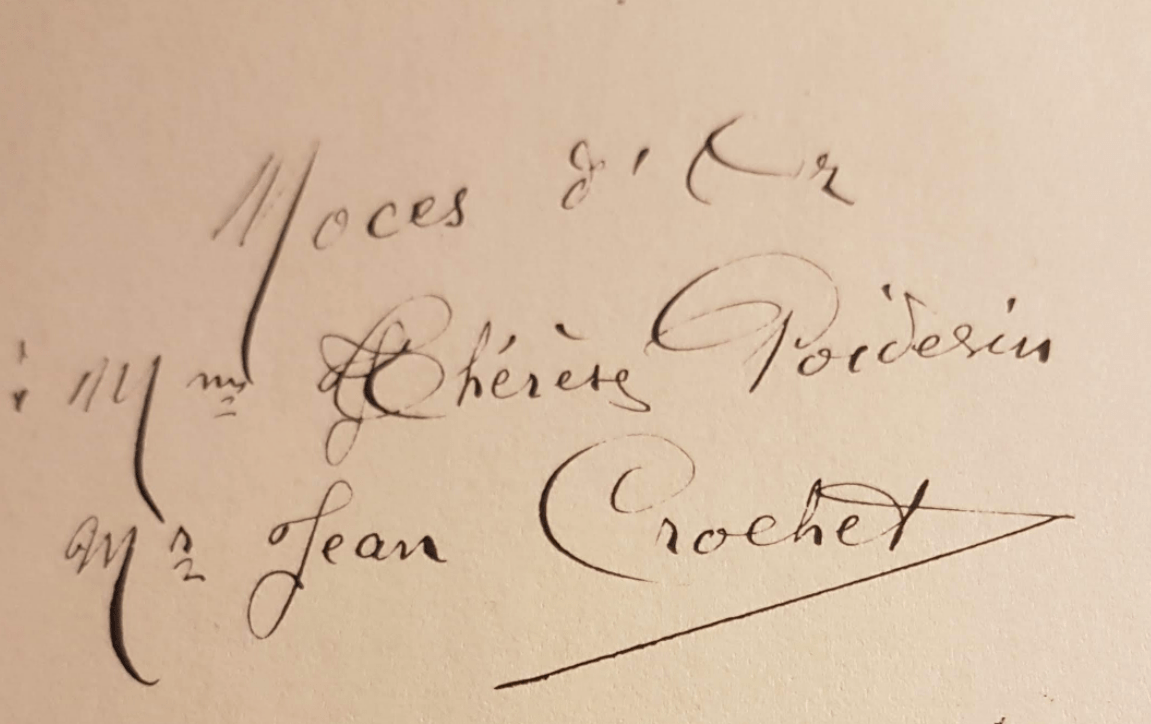 Noces d'Or
: Mme Thérèse Poidevin
Mr Jean Crochet